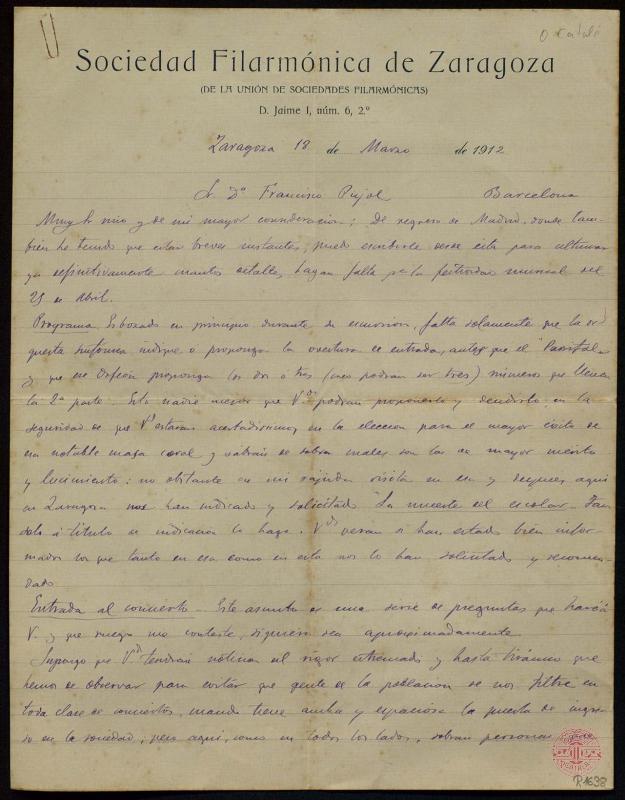 O. Català
Sociedad Filarmónica de Zaragoza
(DE LA UNIÓN DE SOCIEDADES FILARMÓNICAS)
D. Jaime I, núm. 6, 2.º
Zaragoza 18 de Marzo de 1912
Sr. Dn Francisco Pujol Barcelona
Muy Sr mio y de mi mayor consideración; De regreso de Madrid, donde tam-
bién he tenido que estar breves instantes, puedo escribirle desde esta para ultimar
ya definitivamente cuantos detalles hagan falta pa la festividad musical del
25 de Abril.
Programa. Esbozado en principio durante su excursion, falta solamente que la or-
questa sinfónica indique o proponga la overtura de entrada, antes que el "Parsifal"
y que ese Orfeón proponga los dos ó tres (creo podrian ser tres) números que llenen
la 2ª parte. Esto nadie mejor que Vds podran proponerlo y decidirlo en la
seguridad de que Vds estaran acertadisimos en la eleccion para el mayor éxito de
esa notable masa coral y sabrán de sobra cuales son las de mayor mérito
y lucimiento: no obstante en mi rápida visita en esa y despues aqui
en Zaragoza nos han indicado y solicitado "La muerte del escolar". Tan
solo á titulo de indicación lo hago. Vds veran si han estado bien infor-
mados los que tanto en esa como en esta nos lo han solicitado y recomen-
dado
Entrada al concierto - Este asunto es una serie de preguntas que haré á
V. y que ruego me conteste, siquiera sea aproximadamente.
Supongo que Vds tendrán noticia del rigor extremado y hasta tiránico que
hemos de observar para evitar que gente de la poblacion se nos filtre en
toda clase de conciertos, cuando tiene ancha y espaciosa la puerta de ingre-
so en la sociedad; pero aqui, como en todos los lados, sobran personas
R.1638